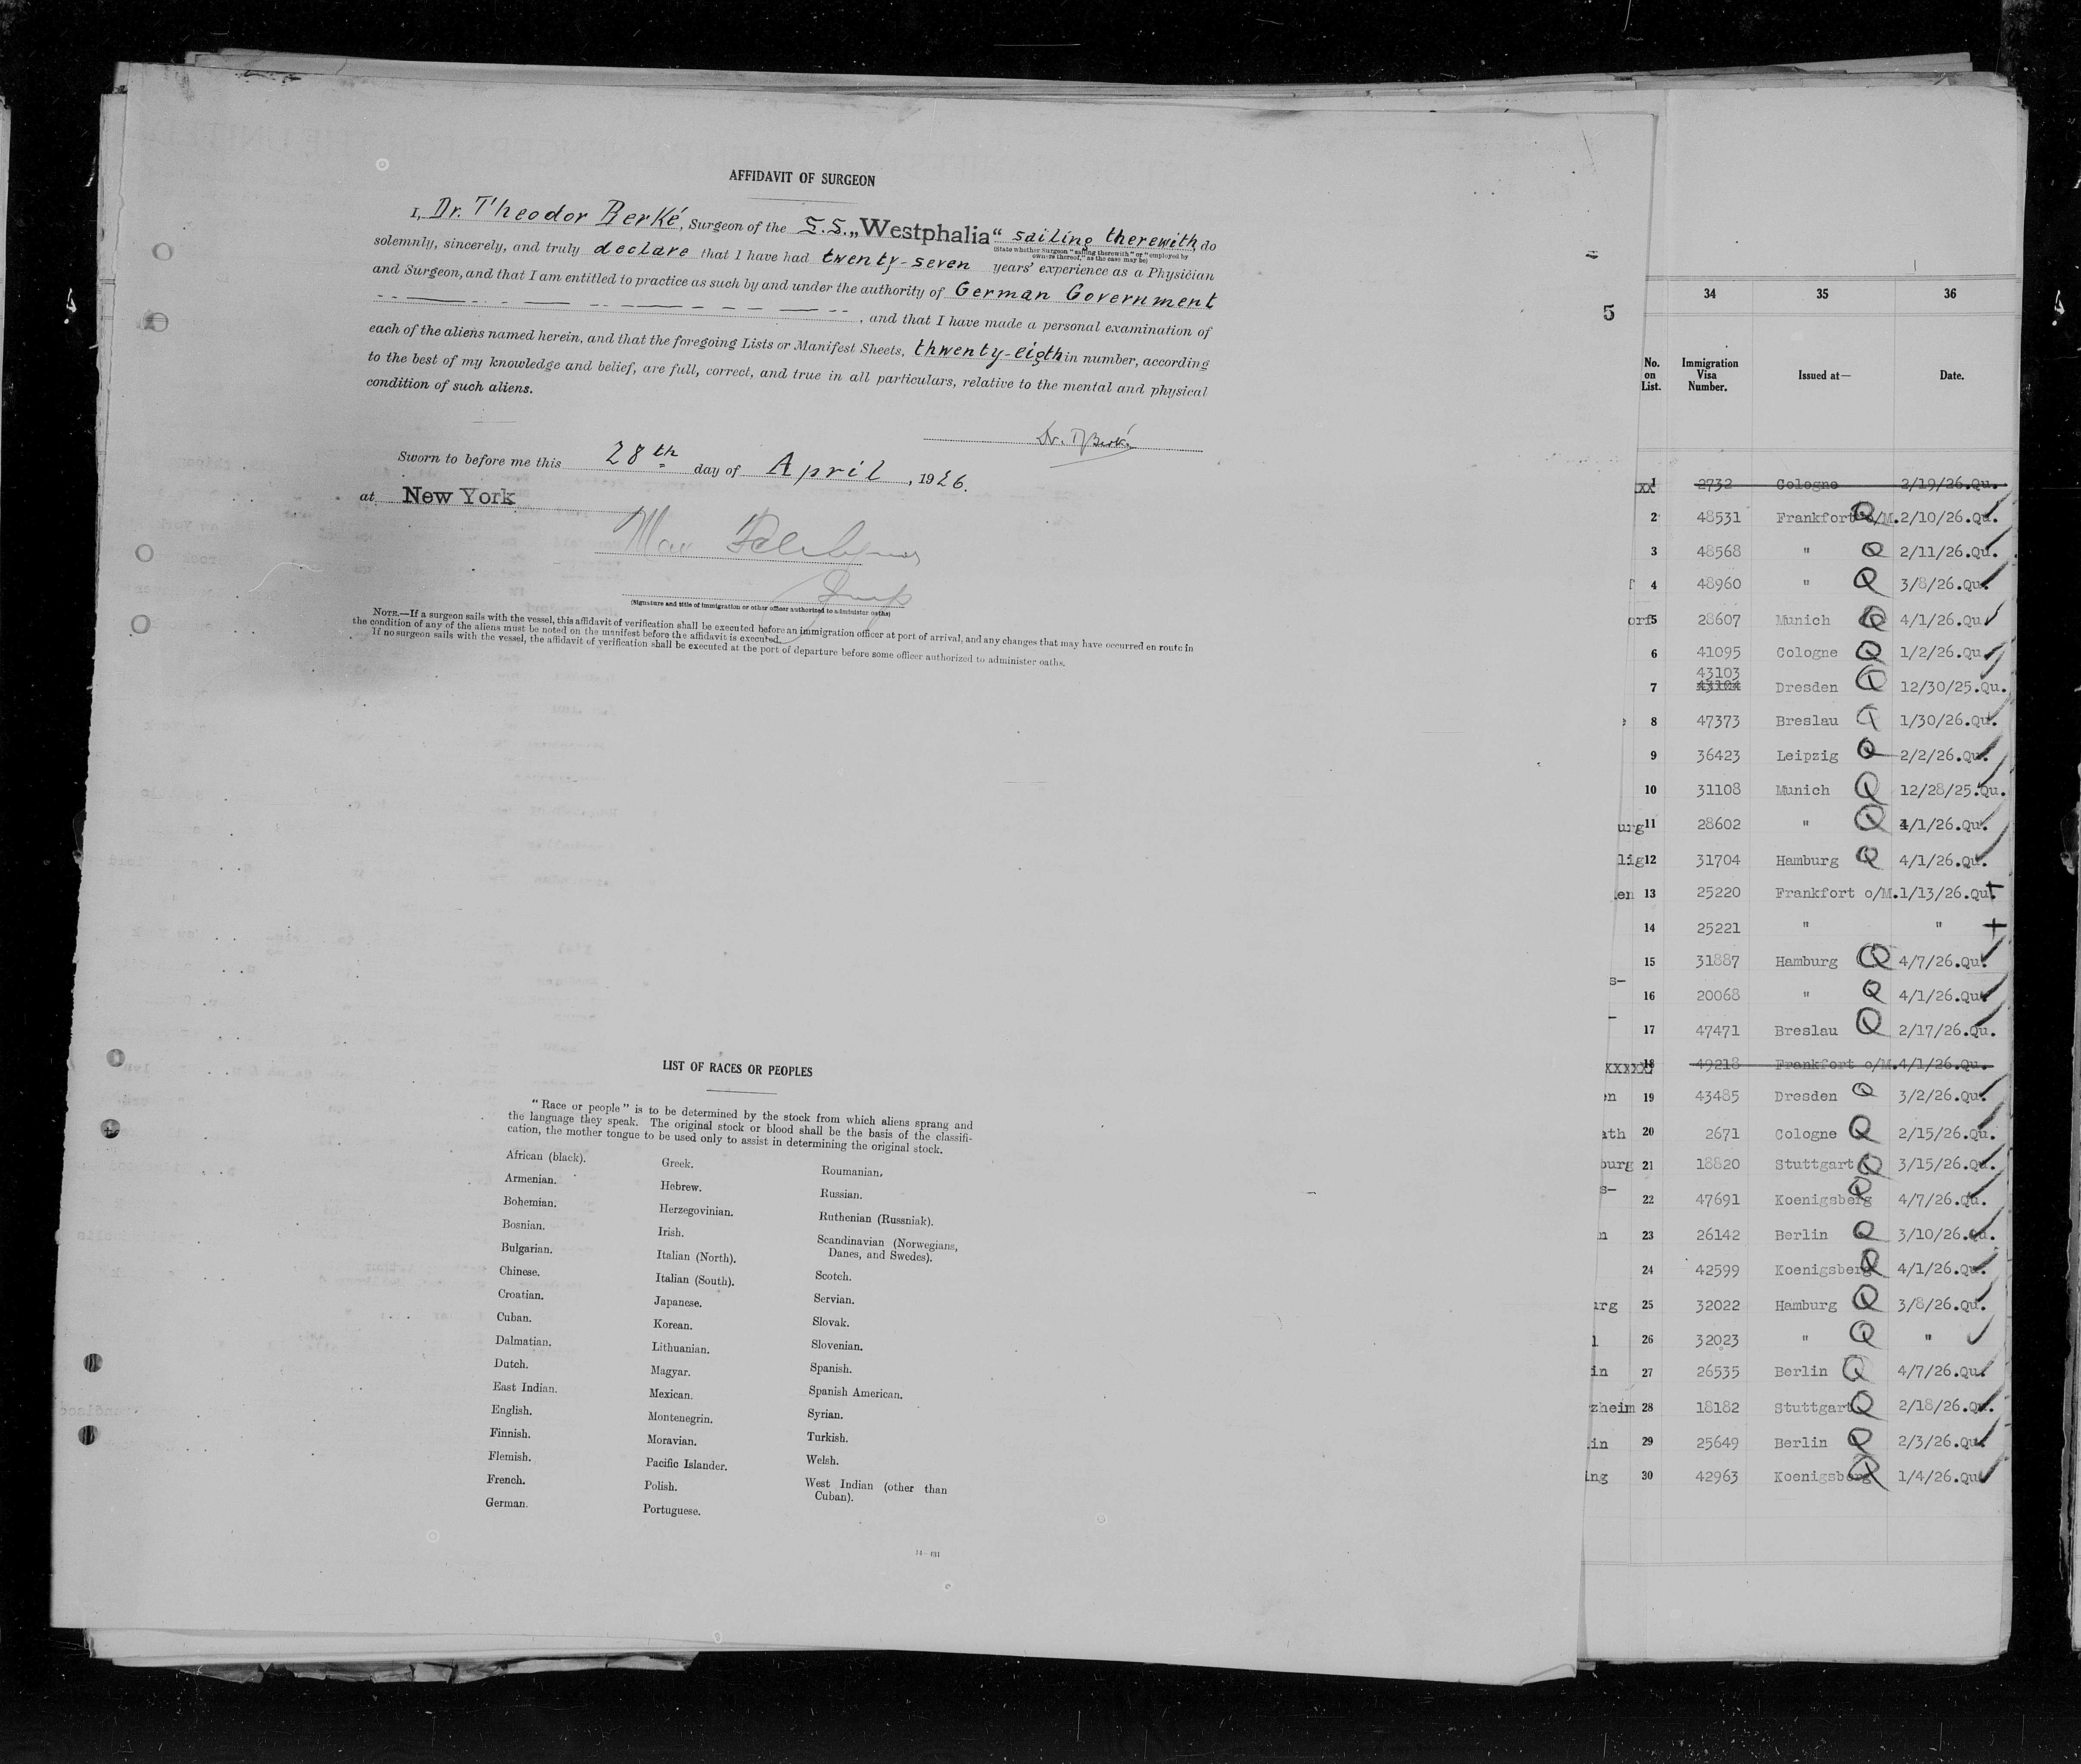 AFFIDAVIT OF SURGEON
I, Dr. Theodor Berké, Surgeon of the S.S. „Westphalia“ sailing therewith, do
(State whether Surgeon "sailing therewith" or "employed by owners thereof," as the case may be)
solemnly, sincerely, and truly declare that I have had twenty-seven years' experience as a Physician
and Surgeon, and that I am entitled to practice as such by and under the authority of German Government
, and that I have made a personal examination of
each of the aliens named herein, and that the foregoing Lists or Manifest Sheets, thwenty-eigth in number, according
to the best of my knowledge and belief, are full, correct, and true in all particulars, relative to the mental and physical
condition of such aliens.
Dr. Berké
Sworn to before me this 28th day of April, 1926.
at New York
(Signature and title of immigration or other officer authorized to administer oaths)
NOTE.—If a surgeon sails with the vessel, this affidavit of verification shall be executed before an immigration officer at port of arrival, and any changes that may have occurred en route in
the condition of any of the aliens must be noted on the manifest before the affidavit is executed.
If no surgeon sails with the vessel, the affidavit of verification shall be executed at the port of departure before some officer authorized to administer oaths.
LIST OF RACES OR PEOPLES
"Race or people" is to be determined by the stock from which aliens sprang and
the language they speak. The original stock or blood shall be the basis of the classifi-
cation, the mother tongue to be used only to assist in determining the original stock.
African (black).
Armenian.
Bohemian.
Bosnian.
Bulgarian.
Chinese.
Croatian.
Cuban.
Dalmatian.
Dutch.
East Indian.
English.
Finnish.
Flemish.
French.
German.
Greek.
Hebrew.
Herzegovinian.
Irish.
Italian (North).
Italian (South).
Japanese.
Korean.
Lithuanian.
Magyar.
Mexican.
Montenegrin.
Moravian.
Pacific Islander.
Polish.
Portuguese.
Roumanian.
Russian.
Ruthenian (Russniak).
Scandinavian (Norwegians,
Danes, and Swedes).
Scotch.
Servian.
Slovak.
Slovenian.
Spanish.
Spanish American.
Syrian.
Turkish.
Welsh.
West Indian (other than
Cuban).
5
34 35 36
No. on List. Immigration Visa Number. Issued at— Date.
xx 1 2732 Cologne 2/19/26.Qu.
2 48531 Frankfort o/M. 2/10/26.Qu.
3 48568 " Q 2/11/26.Qu.
4 48960 " Q 3/8/26.Qu.
orf 5 28607 Munich Q 4/1/26.Qu
6 41095 Cologne Q 1/2/26.Qu
43103
7 43104 Dresden Q 12/30/25.Qu.
e 8 47373 Breslau Q 1/30/26.Qu.
9 36423 Leipzig Q 2/2/26.Qu.
10 31108 Munich Q 12/28/25.Qu.
urg 11 28602 " Q 4/1/26.Qu.
lig 12 31704 Hamburg Q 4/1/26.Qu.
en 13 25220 Frankfort o/M. 1/13/26.Qu.
14 25221 " "
15 31887 Hamburg Q 4/7/26.Qu.
s-
16 20068 " Q 4/1/26.Qu
17 47471 Breslau Q 2/17/26.Qu.
xxxxx 18 49218 Frankfort o/M. 4/1/26.Qu.
en 19 43485 Dresden Q 3/2/26.Qu.
ath 20 2671 Cologne Q 2/15/26.Qu.
burg 21 18820 Stuttgart Q 3/15/26.Qu.
s-
22 47691 Koenigsberg Q 4/7/26.Qu.
n 23 26142 Berlin Q 3/10/26.Qu.
24 42599 Koenigsberg Q 4/1/26.Qu.
urg 25 32022 Hamburg Q 3/8/26.Qu.
l 26 32023 " Q "
in 27 26535 Berlin Q 4/7/26.Qu.
zheim 28 18182 Stuttgart Q 2/18/26.Qu.
in 29 25649 Berlin Q 2/3/26.Qu.
ing 30 42963 Koenigsberg Q 1/4/26.Qu